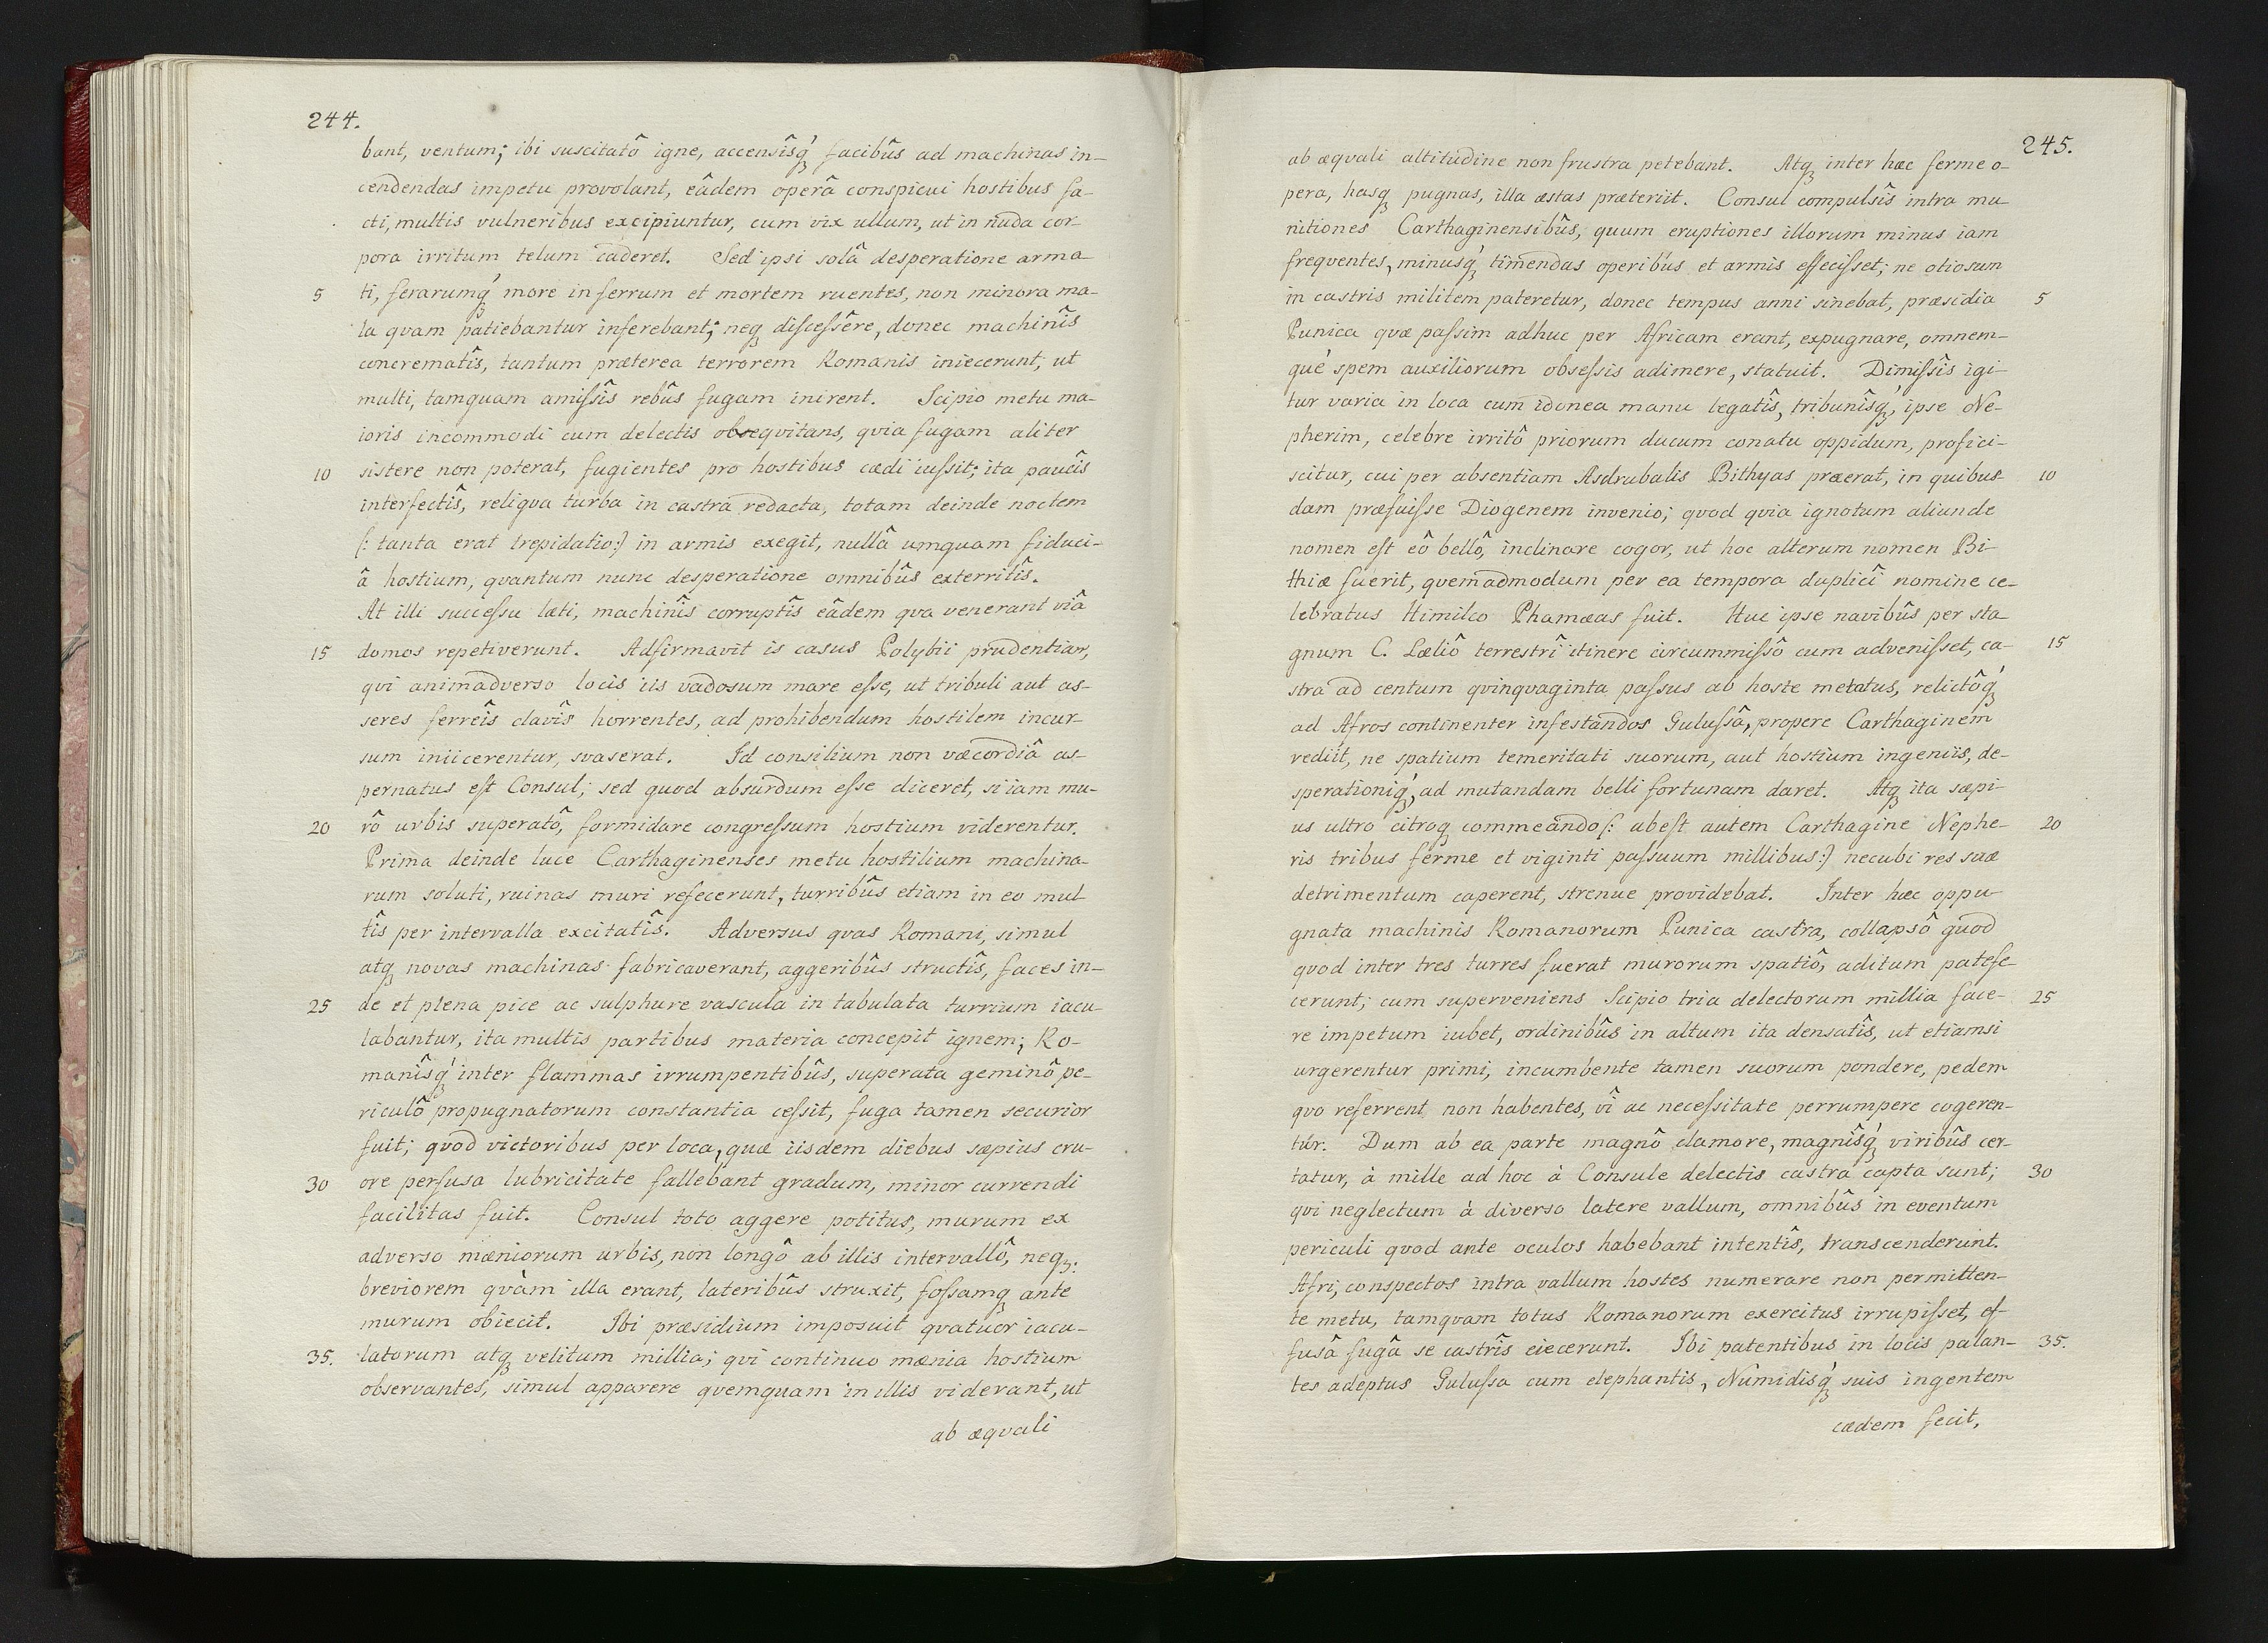 244.
bant, ventum; ibi suscitatô igne, accensîsq́ꝫ facibûs ad machinas in-
cendendas impetu provolant, eâdem operâ conspicui hostibus fa-
cti, multis vulneribus excipiuntur, cum vix ullum, ut in nuda cor-
pora irritum telum caderet. Sed ipsi solâ desperatione arma-
5 ti, ferarumq́ꝫ more in ferrum et mortem ruentes, non minora ma-
la qvam patiebantur inferebant; neqꝫ disceſsêre, donec machinîs
concrematîs, tantum præterea terrorem Romanis iniecerunt, ut
multi, tamquam amiſsîs rebûs fugam inirent. Scipio metu ma-
ioris incommodi cum delectis obseqvitans, qvia fugam aliter
10 sistere non poterat, fugientes pro hostibus cædi iuſsit; ita paucîs
interfectîs, reliqva turba in castra redacta, totam deinde noctem
(: tanta erat trepidatio:) in armis exegit, nullâ umquam fiduci-
â hostium, qvantum nunc desperatione omnibûs exterritîs.
At illi succeſsu læti, machinîs corruptîs eâdem qva venerant viâ
15 domos repetiverunt. Adfirmavit is casus Polybii prudentiam,
qvi animadverso locis iis vadosum mare eſse, ut tribuli aut as-
seres ferreîs clavîs horrentes, ad prohibendum hostilem incur-
sum iniicerentur, svaserat. Id consilium non væcordiâ as-
pernatus eſt Consul; sed quod absurdum eſse diceret, si iam mu-
20 rô urbis superatô, formidare congreſsum hostium viderentur.
Prima deinde luce Carthaginenses metu hostilium machina-
rum soluti, ruinas muri refecerunt, turribûs etiam in eo mul-
tîs per intervalla excitatîs. Adversus qvas Romani, simul
atqꝫ novas machinas fabricaverant, aggeribûs structîs, faces in-
25 de et plena pice ac sulphure vascula in tabulata turrium iacu-
labantur, ita multis partibus materia concepit ignem; Ro-
manîsq́ꝫ inter flammas irrumpentibûs, superata geminô pe-
riculô propugnatorum constantia ceſsit, fuga tamen securior
fuit; qvod victoribus per loca, quæ iisdem diebus sæpius cru-
30 ore perfusa lubricitate fallebant gradum, minor currendi
facilitas fuit. Consul toto aggere potitus, murum ex
adverso mœniorum urbis, non longô ab illis intervallô, neqꝫ:
breviorem qvàm illa erant, lateribûs struxit, foſsamqꝫ ante
murum obiecit. Ibi præsidium imposuit qvatuor iacu-
35. latorum atqꝫ velitum millia; qvi continuo mœnia hostium
observantes, simul apparere qvemquam in illis viderant, ut
ab æqvali
245.
ab æqvali altitudine non frustra petebant. Atqꝫ inter hæc ferme o-
pera, hasqꝫ pugnas, illa æstas præteriit. Consul compulsîs intra mu-
nitiones Carthaginensibûs, quum eruptiones illorum minus iam
freqventes, minusq́ꝫ timendas operibus et armis effeciſset; ne otiosum
in castris militem pateretur, donec tempus anni sinebat, præsidia 5
Punica quæ paſsim adhuc per Africam erant, expugnare, omnem-
qué spem auxiliorum obseſsis adimere, statuit. Dimiſsîs igi-
tur varia in loca cum idonea manu legatîs, tribunîsq́ꝫ, ipse Ne-
pherim, celebre irritô priorum ducum conatu oppidum, profici-
scitur, cui per absentiam Asdrubalis Bithyas præerat, in quibus- 10
dam præfuiſse Diogenem invenio; qvod qvia ignotum aliunde
nomen eſt eô bellô, inclinare cogor, ut hoc alterum nomen Bi-
thiæ fuerit, qvemadmodum per ea tempora duplicî nomine ce-
lebratus Himilco Phamæas fuit. Huc ipse navibûs per sta-
gnum C. Læliô terrestrî itinere circummiſsô cum adveniſset, ca- 15
stra ad centum qvinqvaginta paſsus ab hoste metatus, relictôq́ꝫ
ad Afros continenter infestandos Guluſsâ, propere Carthaginem
rediit, ne spatium temeritati suorum, aut hostium ingeniis, de-
sperationiq́ꝫ, ad mutandam belli fortunam daret. Atqꝫ ita sæpi-
us ultro citroqꝫ commeando (: abeſt autem Carthagine Nephe- 20
ris tribus ferme et viginti paſsuum millibus:) necubi res suæ
detrimentum caperent, strenue providebat. Inter hæc oppu-
gnata machinis Romanorum Punica castra, collapsô quod
qvod inter tres turres fuerat murorum spatiô, aditum patefe-
cerunt; cum superveniens Scipio tria delectorum millia face- 25
re impetum iubet, ordinibûs in altum ita densatîs, ut etiamsi
urgerentur primi, incumbente tamen suorum pondere, pedem
qvo referrent non habentes, vî ac neceſsitate perrumpere cogeren-
tur. Dum ab ea parte magnô clamore, magnîsq́ꝫ viribûs cer-
tatur, à mille ad hoc à Consule delectis castra capta sunt; 30
qvi neglectum à diverso latere vallum, omnibûs in eventum
periculi qvod ante oculos habebant intentîs, transcenderunt.
Afri, conspectos intra vallum hostes numerare non permitten-
te metu, tamqvam totus Romanorum exercitus irrupiſset, ef-
fusâ fugâ se castrîs eiecerunt. Ibi patentibus in locis palan- 35.
tes adeptus Guluſsa cum elephantis, Numidisq́ꝫ suis ingentem
cædem fecit,